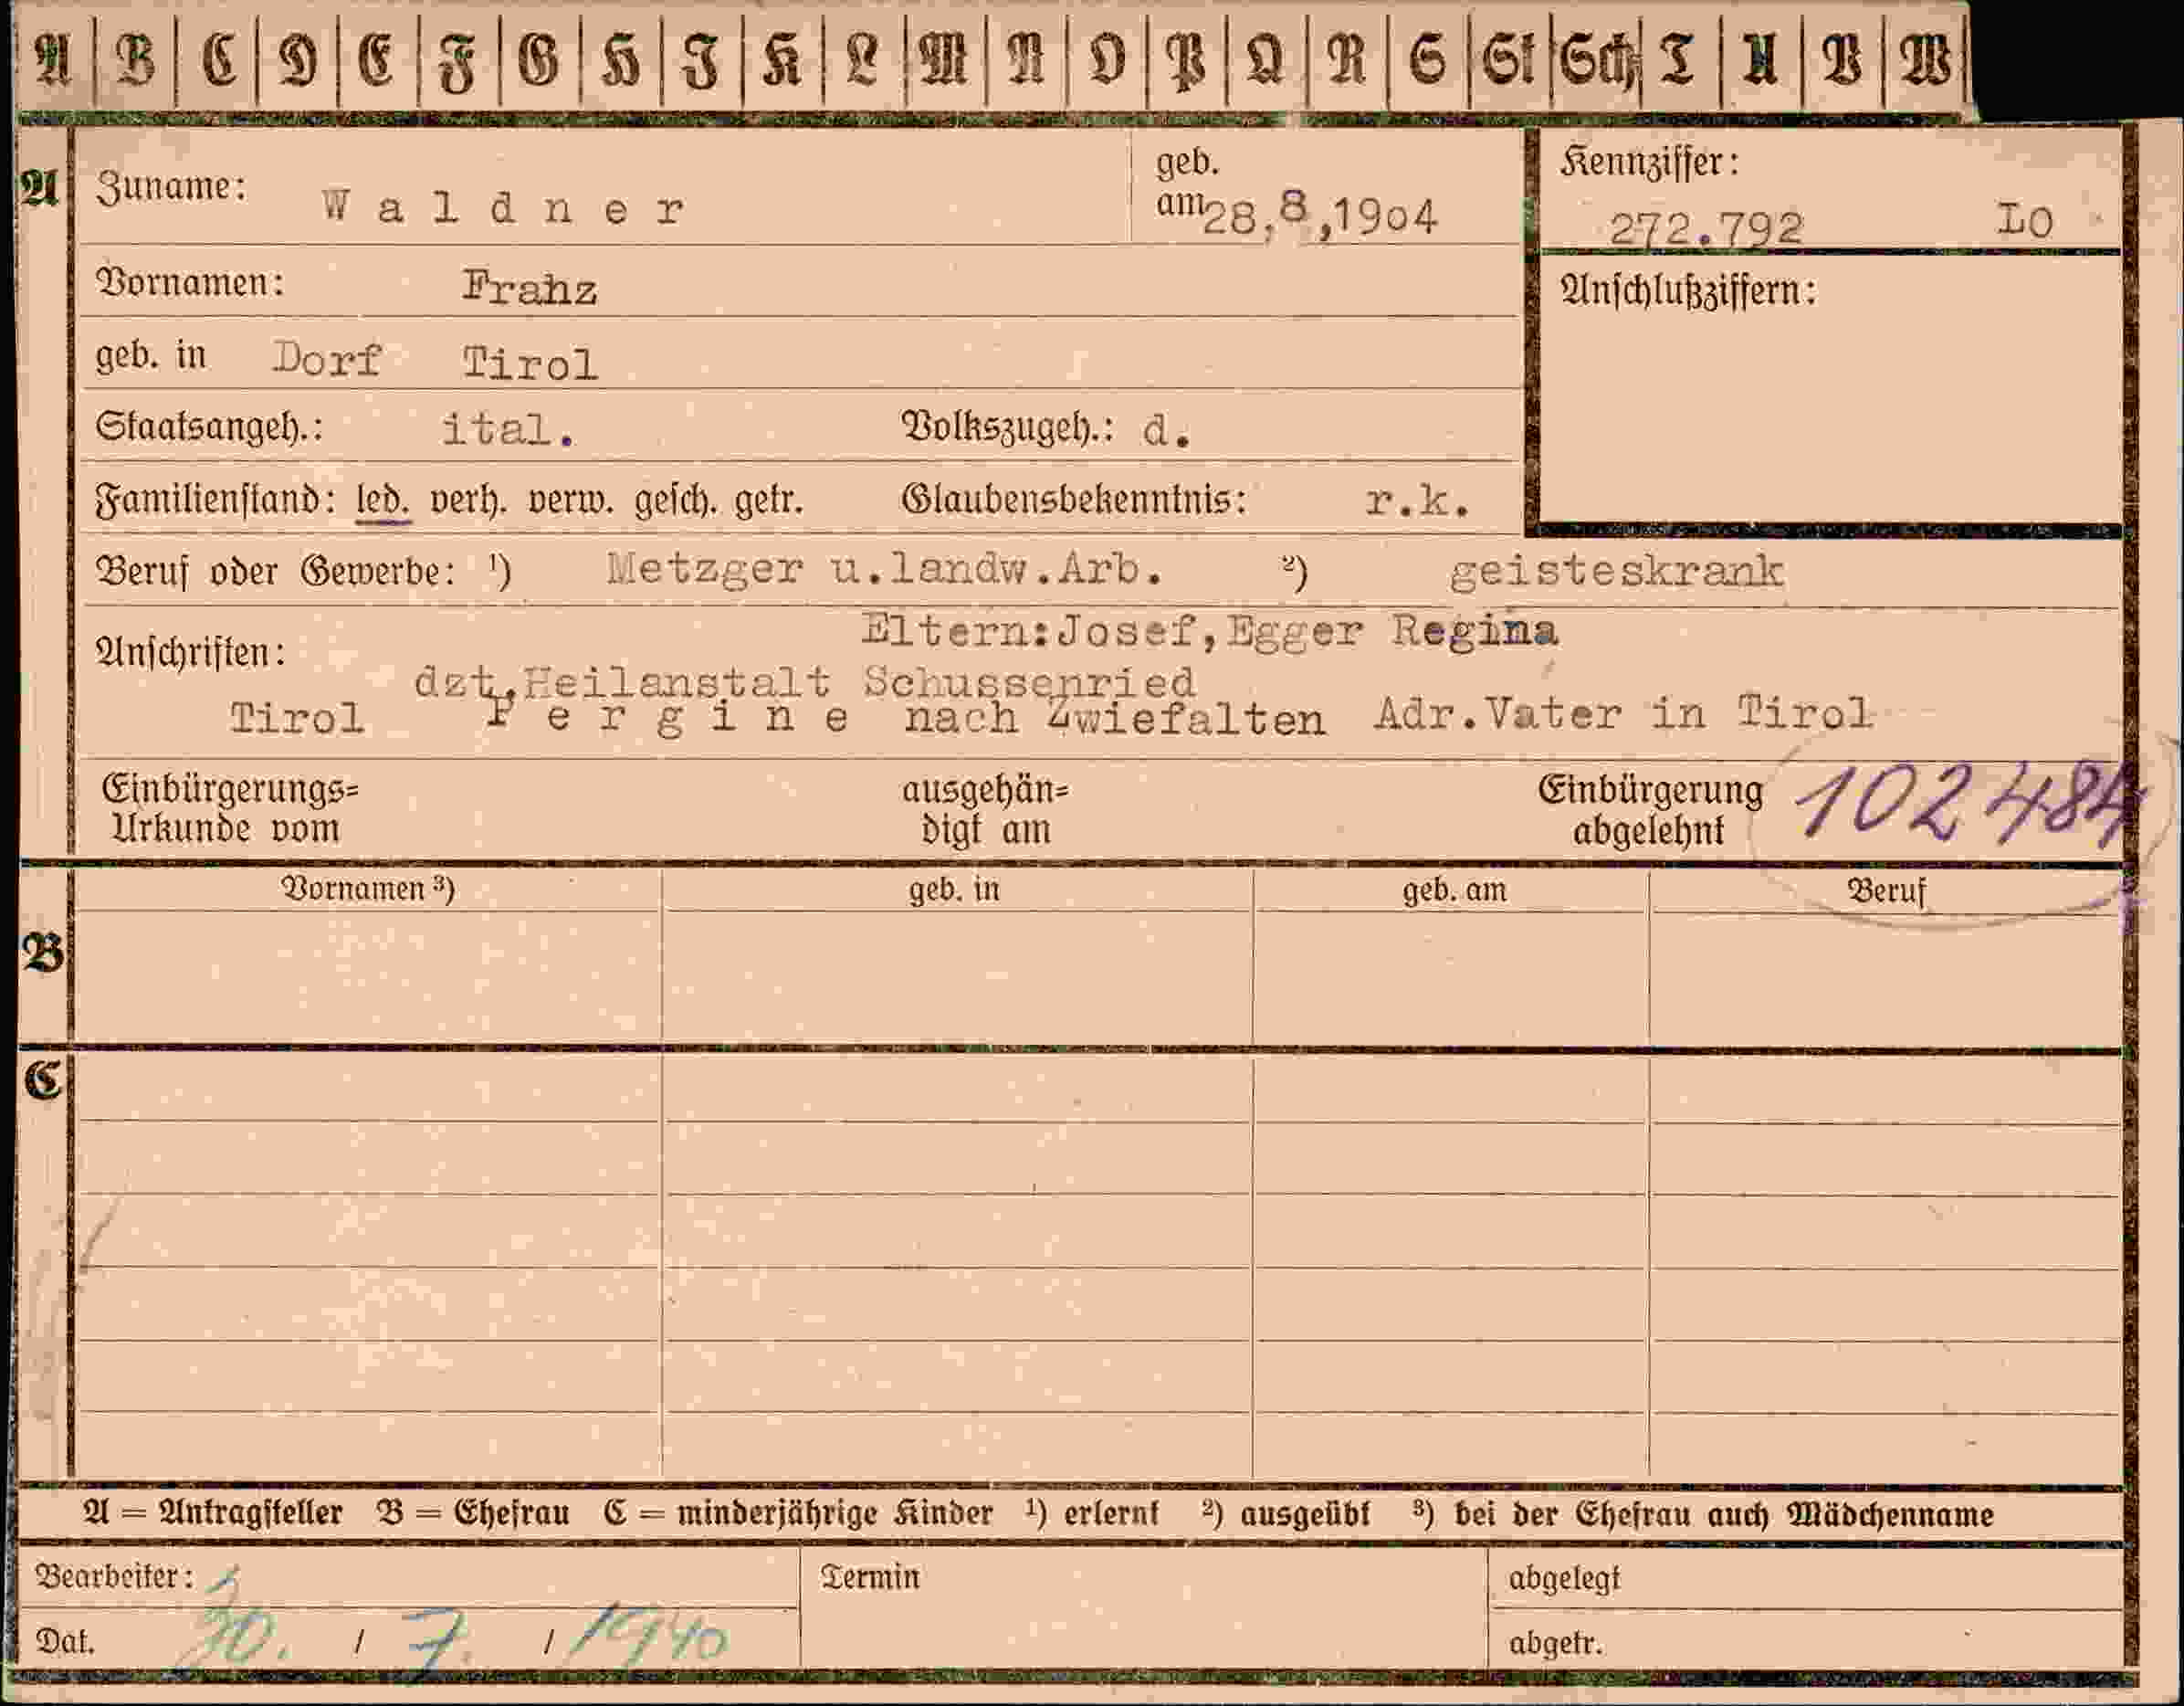 A B C D E F G H I K L M N O P Q R S St Sch T U V W
A Zuname: Waldner geb. am 28,8,1904 Kennziffer: 272.792 LO
Vornamen: Franz Anschlußziffern:
geb. in Dorf Tirol
Staatsangeh.: ital. Volkszugeh.: d.
Familienstand: led. verh. verw. gesch. getr. Glaubensbekenntnis: r.k.
Beruf oder Gewerbe: ¹) Metzger u.landw.Arb. ²) geisteskrank
Eltern:Josef,Egger Regina
Anschriften:
dzt.Heilanstalt Schussenried
Tirol Pergine nach Zwiefalten Adr.Vater in Tirol
Einbürgerungs= ausgehän= Einbürgerung 102484
Urkunde vom digt am abgelehnt
Vornamen ³) geb. in geb. am Beruf
B
C
A = Antragsteller B = Ehefrau C = minderjährige Kinder ¹) erlernt ²) ausgeübt ³) bei der Ehefrau auch Mädchenname
Bearbeiter: Termin abgelegt
Dat. 30. / 7. / 1940 abgetr.